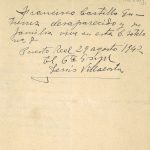 Francisco Castillo Gu
tierrez desaparecido y su
familia vive en esta C. 
Puerto Real 29 agosto 1942
El
Jesús Villacorta